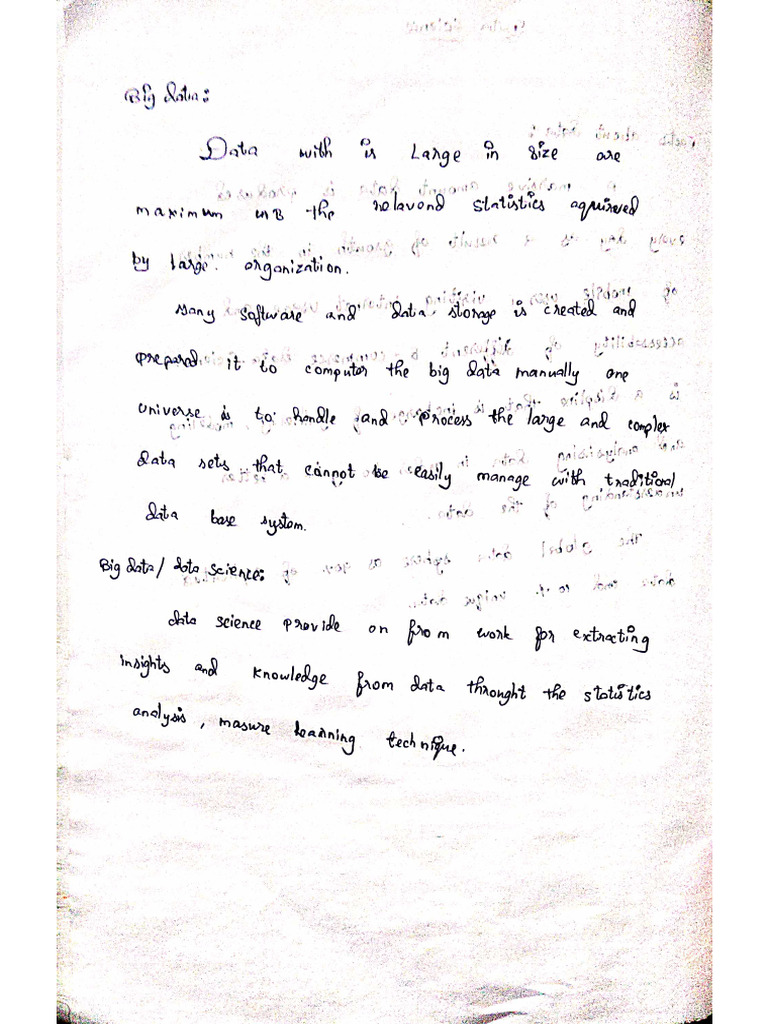 Big data:
Data with is Large in size are
maximum the relavond statistics aquireed
by large. organization.
Many software and data storage is created and
prepared it to computer the big data manually one
universe is to handle and process the large and complex
data sets that cannot be easily manage with traditional
data base system.
Big data/data science:
data science provide on from work for extracting
insights and knowledge from data throught the statistics
analysis, masure learning technique.